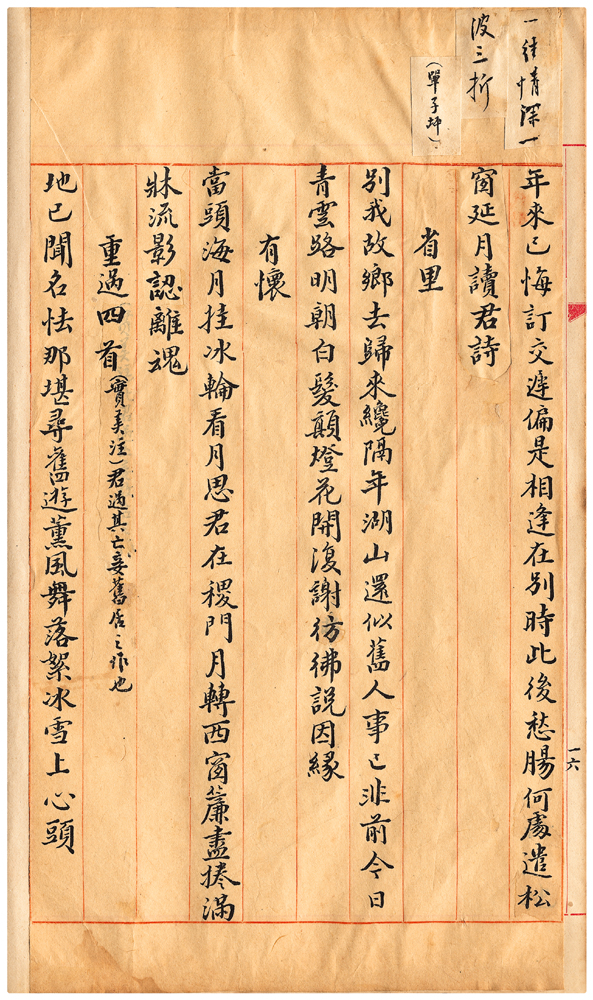 一往情深一
波三折
(單子坪)
年來已悔訂交遲偏是相逢在別時此後愁腸何處遣松
窗延月讀君詩
省里
別我故鄉去歸來纔隔年湖山還似舊人事已非前今日
青雲路明朝白髮顛燈花開復謝彷彿說因緣
有懷
當頭海月挂冰輪看月思君在稷門月轉西窗簾盡捲滿
牀流影認離魂
重過四首(實美注)君過其亡妾舊居之作也
地已聞名怯那堪尋舊遊薰風舞落絮冰雪上心頭
一六